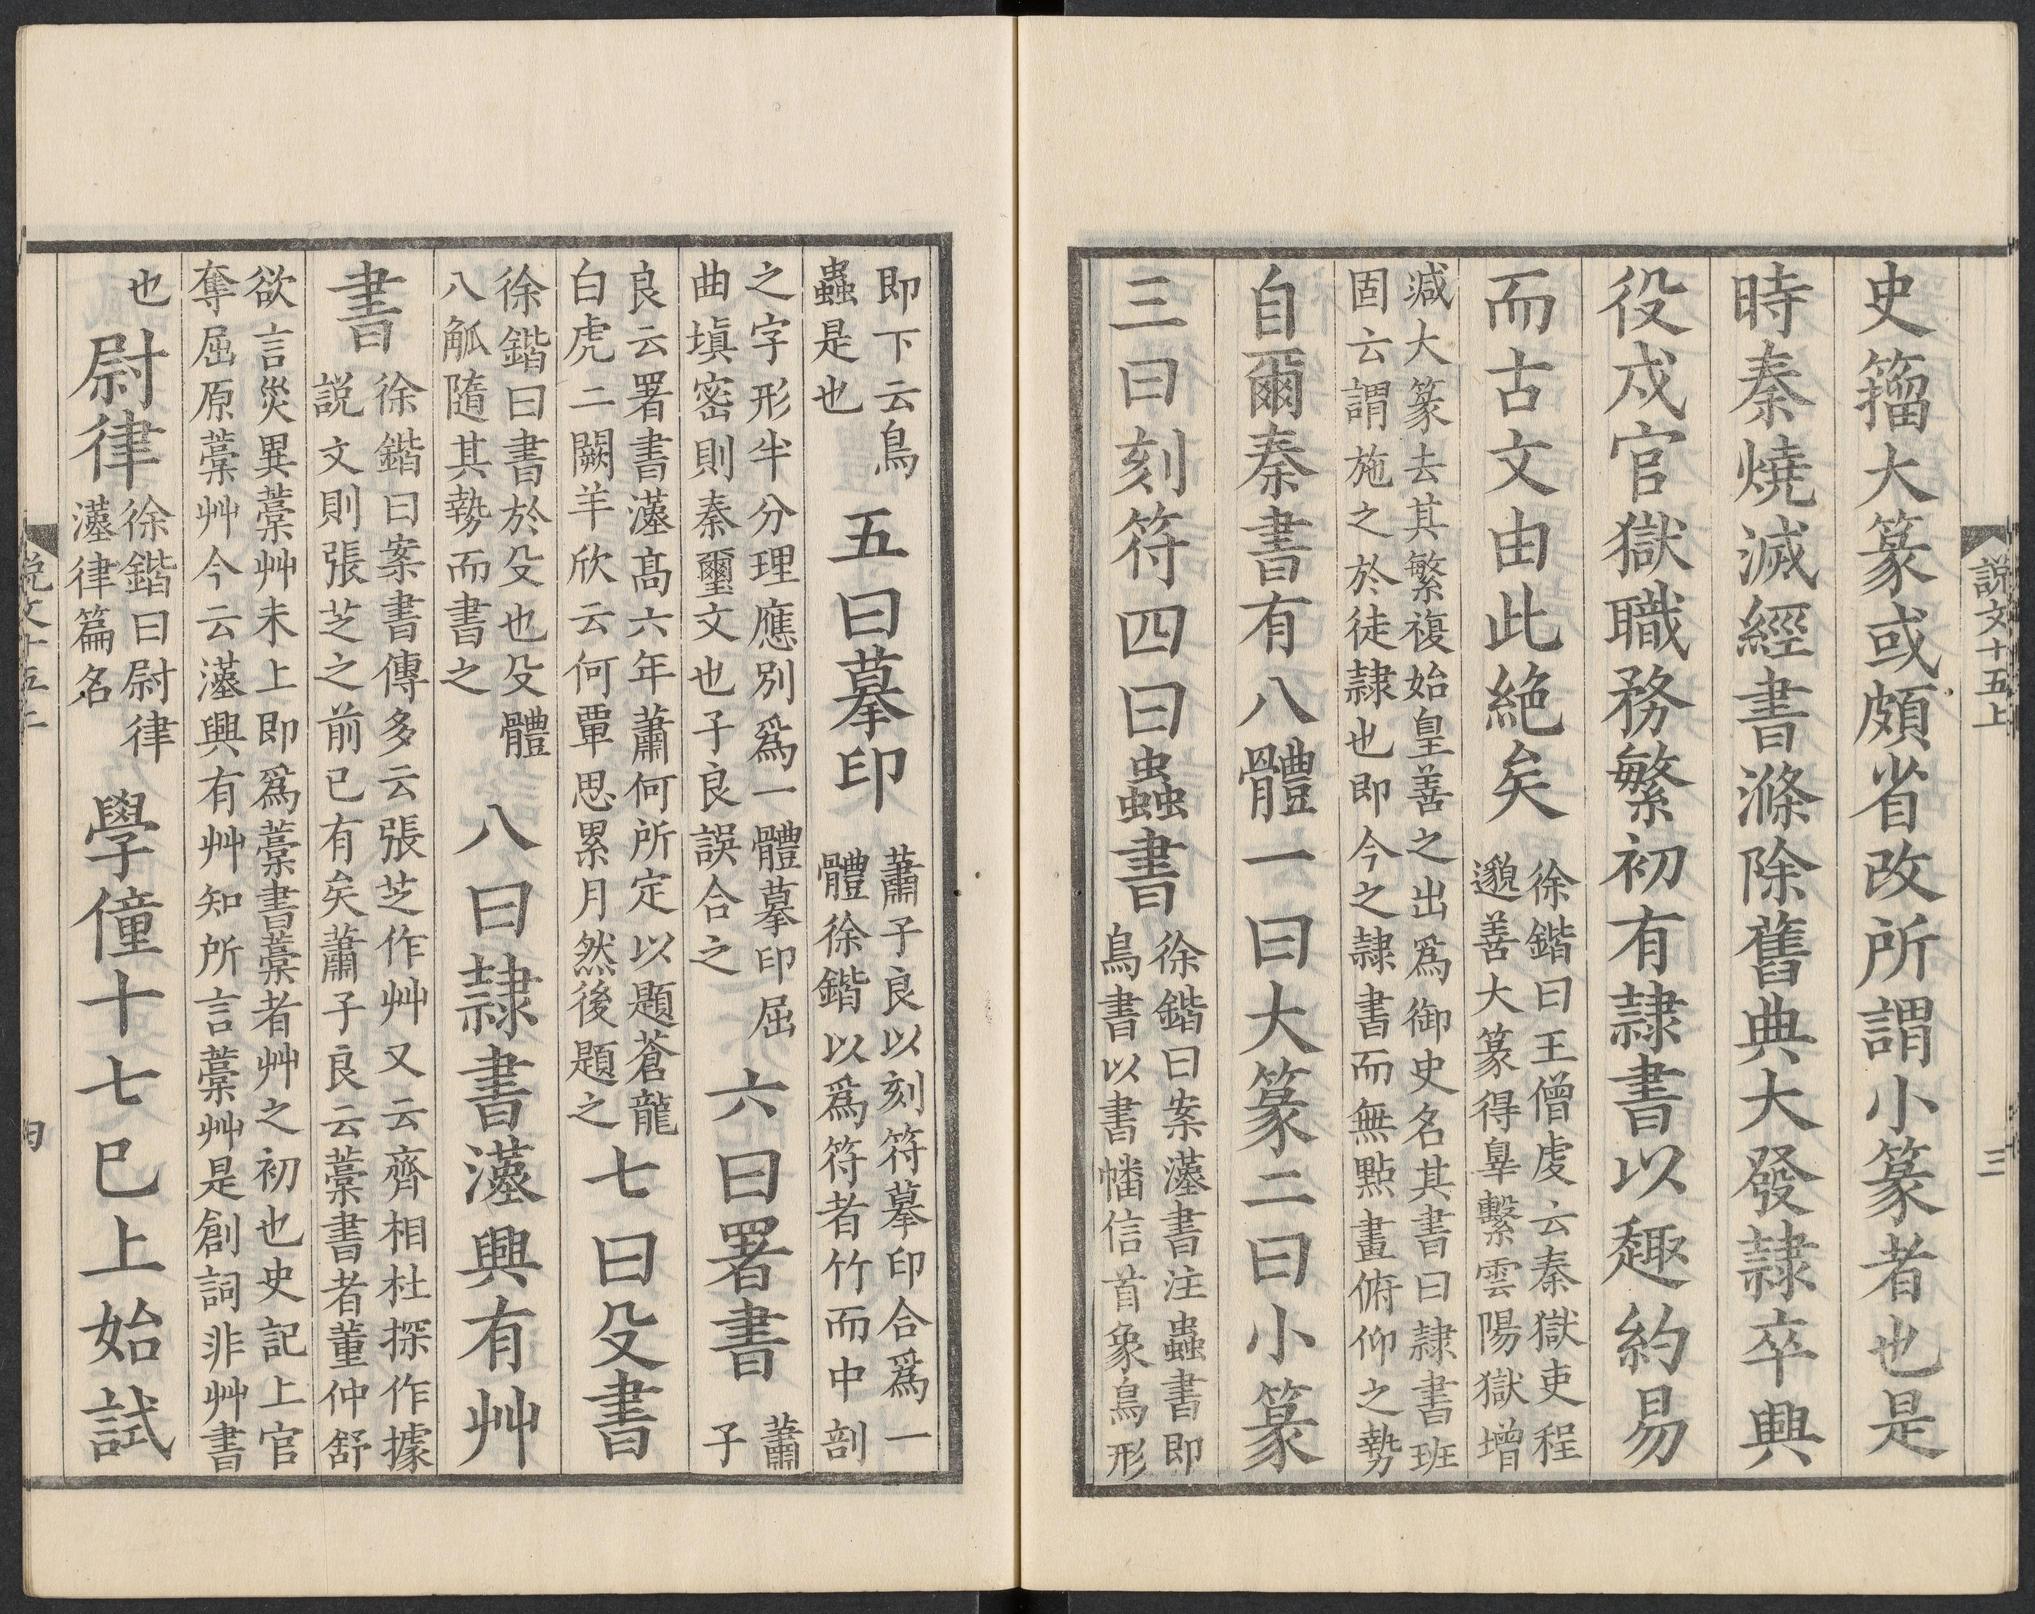 說文十五上
三
史籒大篆或頗省改所謂小篆者也是
時秦燒滅經書滌除舊典大發隷卒興
役戍官獄職務繁初有隷書以趣約易
而古文由此絶矣
徐鍇曰王僧虔云秦獄吏程
邈善大篆得辠繫雲陽獄增
减大篆去其繁複始皇善之出爲御史名其書曰隷書班
固云謂施之於徒隷也即今之隷書而無點畫俯仰之勢
自爾秦書有八體一曰大篆二曰小篆
三曰刻符四曰蟲書
徐鍇曰案漢書注蟲書即
鳥書以書幡信首象鳥形
即下云鳥
蟲是也
五曰摹印
蕭子良以刻符摹印合爲一
體徐鍇以爲符者竹而中剖
之字形半分理應別爲一體摹印屈
曲塡密則秦璽文也子良誤合之
六曰署書
蕭
子
良云署書漢高六年蕭何所定以題蒼龍
白虎二闕羊欣云何覃思累月然後題之
七曰殳書
徐鍇曰書於殳也殳體
八觚隨其勢而書之
八曰隷書漢興有艸
書
徐鍇曰案書傳多云張芝作艸又云齊相杜探作據
説文則張芝之前已有矣蕭子良云藁書者董仲舒
欲言災異藁艸未上即爲藁書藁者艸之初也史記上官
奪屈原藁艸今云漢興有艸知所言藁艸是創詞非艸書
也
尉律
徐鍇曰尉律
漢律篇名
學僮十七已上始試